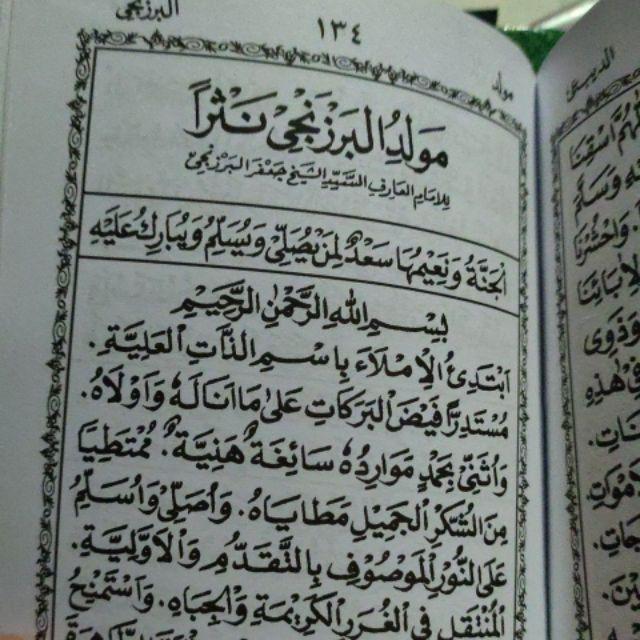 البرزنجي
١٣٤
مولد
مَوْلِدُ الْبَرْزَنْجِيْ نَثْرًا
لِلْإِمَامِ الْعَارِفِ السَّيِّدِ الشَّيْخِ جَعْفَرِ الْبَرْزَنْجِيْ
اَلْجَنَّةُ وَنَعِيْمُهَا سَعْدٌ لِمَنْ يُصَلِّيْ وَيُسَلِّمُ وَيُبَارِكُ عَلَيْهِ
بِسْــمِ اللهِ الرَّحْمٰنِ الرَّحِيْـمِ
اَبْتَدِئُ الْاِمْلَاءَ بِاسْمِ الذَّاتِ الْعَلِيَّةِ.
مُسْتَدِرًّا فَيْضَ الْبَرَكَاتِ عَلٰى مَا اَنَالَهُ وَاَوْلَاهُ.
وَاُثَنِّيْ بِحَمْدٍ مَوَارِدُهُ سَائِغَةٌ هَنِيَّةٌ. مُمْتَطِيًا
مِنَ الشُّكْرِ الْجَمِيْلِ مَطَايَاهُ. وَاُصَلِّيْ وَاُسَلِّمُ
عَلَى النُّوْرِ الْمَوْصُوْفِ بِالتَّقَدُّمِ وَالْاَوَّلِيَّةِ.
الْمُنْتَقِلِ فِى الْغُرَرِ الْكَرِيْمَةِ وَالْجِبَاهِ. وَاَسْتَمْنِحُ